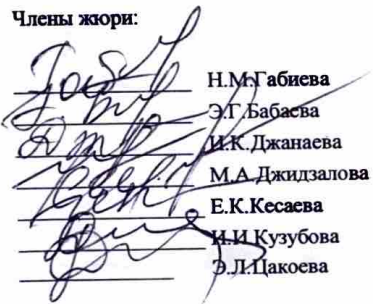 Члены жюри:
Н.М.Габиева
Э.Г.Бабаева
И.К.Джанаева
М.А.Джидзалова
Е.К.Кесаева
И.И.Кузубова
Э.Л.Цакоева